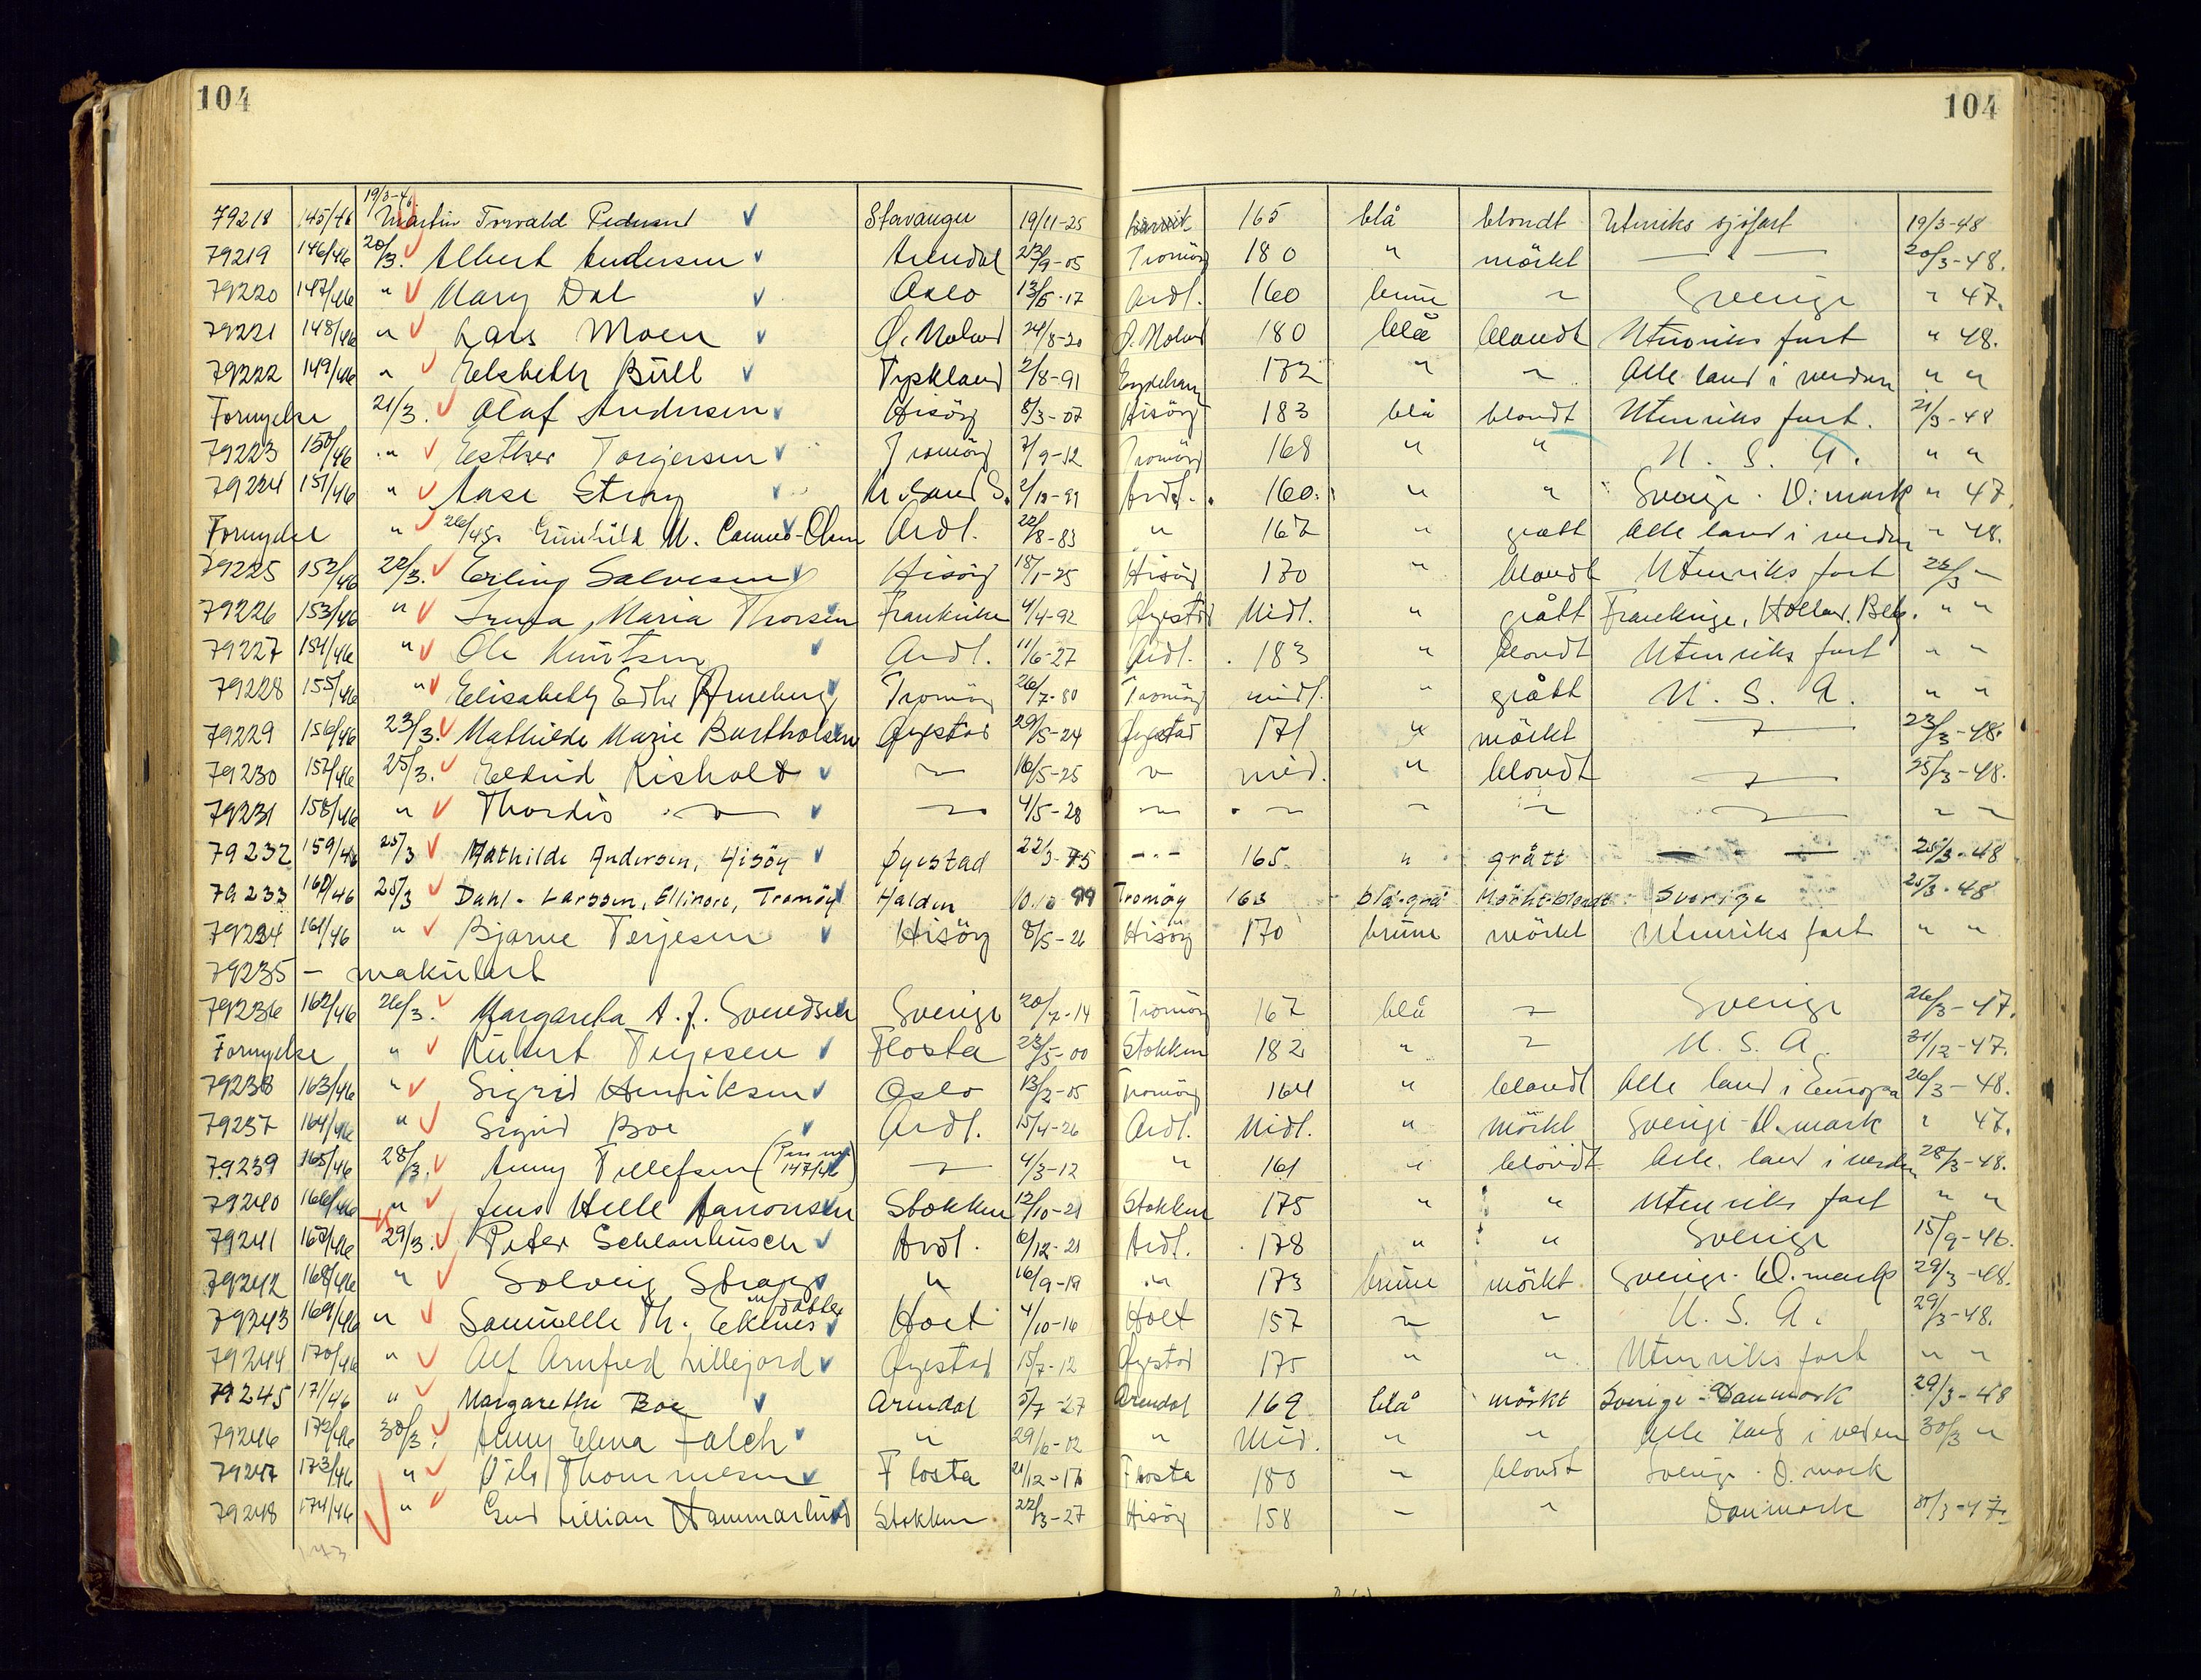 104 104
79218 145/46 19/3-46 Martin Torvald Pedersen Stavanger 19/11-25 165 blå blondt Utenriks sjöfart 19/3-48
79219 146/46 20/3. Albert Andersen Arendal 23/9-05 Tromöy 180 " mörkt — " — 20/3-48.
79220 147/46 " Mary Dal Oslo 13/5-17 Ardl. 160 brune " Sverige " 47.
79221 148/46 " Lars Moen Ö. Moland 24/8-20 Ö. Moland 180 blå blondt Utenriks fart " 48.
79222 149/46 " Elsbeth Büll Tyskland 2/8-91 172 " " Alle land i verden " "
Fornyelse 21/3. Olaf Andersen Hisöy 8/3-07 Hisöy 183 blå blondt Utenriks fart. 21/3-48
79223 150/46 " Esther Torjersen Tromöy 7/9-12 Tromöy 168 " " U. S. A. " "
79224 151/46 " Aase Stray Kr.sand S. 2/10-99 Ardl. 160. " " Sverige. D.mark " 47.
Fornyelse " 26/45. Gunhild M. Olsen Ardl. 22/8-83 " 167 " grått Alle land i verden " 48.
79225 152/46 22/3. Erling Salvesen Hisöy 18/1-25 Hisöy 170 " blondt Utenriks fart 22/3 "
79226 153/46 " Maria Thorsen Frankrike 4/4-92 Öyestad Midl. " grått Frankrige, Holland, Belg. " "
79227 154/46 " Ole Knutsen Ardl. 11/6-27 Ardl. 183 " blondt Utenriks fart " "
79228 155/46 " Elisabeth Edle Arneberg Tromöy 26/7-80 Tromöy midl. " grått U. S. A. " "
79229 156/46 23/3. Mathilde Marie Bartholsen Öyestad 29/5-24 Öyestad 171 " mörkt — " — 23/3-48.
79230 157/46 25/3. Eldrid Risholt " 16/5-25 " mid. " blondt — " — 25/3-48.
79231 158/46 " Thordis — " — " 4/5-28 " " " " — " — " "
79232 159/46 25/3 Mathilde Andersen, Hisöy Öyestad 22/3-75 -"- 165 " grått — " — 25/3-48
79233 160/46 25/3 Dahl-Larssen, Ellinore, Tromöy Halden 10.10 99 Tromöy 163 blå-grå Mörkt-blondt Sverige 25/3-48
79234 161/46 " Bjarne Terjesen Hisöy 8/5-26 Hisöy 170 brune mörkt Utenriks fart " "
79235 — makulert
79236 162/46 26/3. Margareta A. J. Svendsen Sverige 20/7-14 Tromöy 167 blå " Sverige 26/3-47.
Fornyelse " Terjesen Flosta 23/5-00 Stokken 182 " " U. S. A. 31/12-47.
79238 163/46 " Sigrid Henriksen Oslo 13/2-05 Tromöy 164 " blondt Alle land i Europa 26/3-48.
79237 164/46 " Sigrid Boe Ardl. 15/4-26 Ardl. Midl. " mörkt Sverige-D.mark " 47.
79239 165/46 28/3. Anny Tellefsen (Pass nr. 147/46) " 4/3-12 " 161 " blondt Alle land i verden 28/3-48.
79240 166/46 " Jens Helle Aanonsen Stokken 12/10-21 Stokken 175 " " Utenriks fart " "
79241 167/46 29/3. Peter Schlanbusch Ardl. 6/12-21 Ardl. 178 " " Sverige 15/9-46.
79242 168/46 " Solveig Stray " 16/9-19 " 173 brune mörkt Sverige-D.mark 29/3-48.
79243 169/46 " Samuelle Th. Ekenes m/datter Holt 4/10-16 Holt 157 " " U. S. A. 29/3-48.
79244 170/46 " Alf Arnfred Lillejord Öyestad 15/7-12 Öyestad 175 " " Utenriks fart " "
79245 171/46 " Margarethe Boe Arendal 5/7-27 Arendal 169 blå mörkt Sverige-Danmark 29/3-48
79246 172/46 30/3. Anny Elena Falch " 29/6-12 " Mid. " " Alle land i verden 30/3 "
79247 173/46 " Nils Thommesen Flosta 21/12-16 Flosta 180 " blondt Sverige. D.mark
79248 174/46 " Gud Lillian Hammarlund Stokken 22/3-27 Hisöy 158 — " Danmark 30/3-47.
173